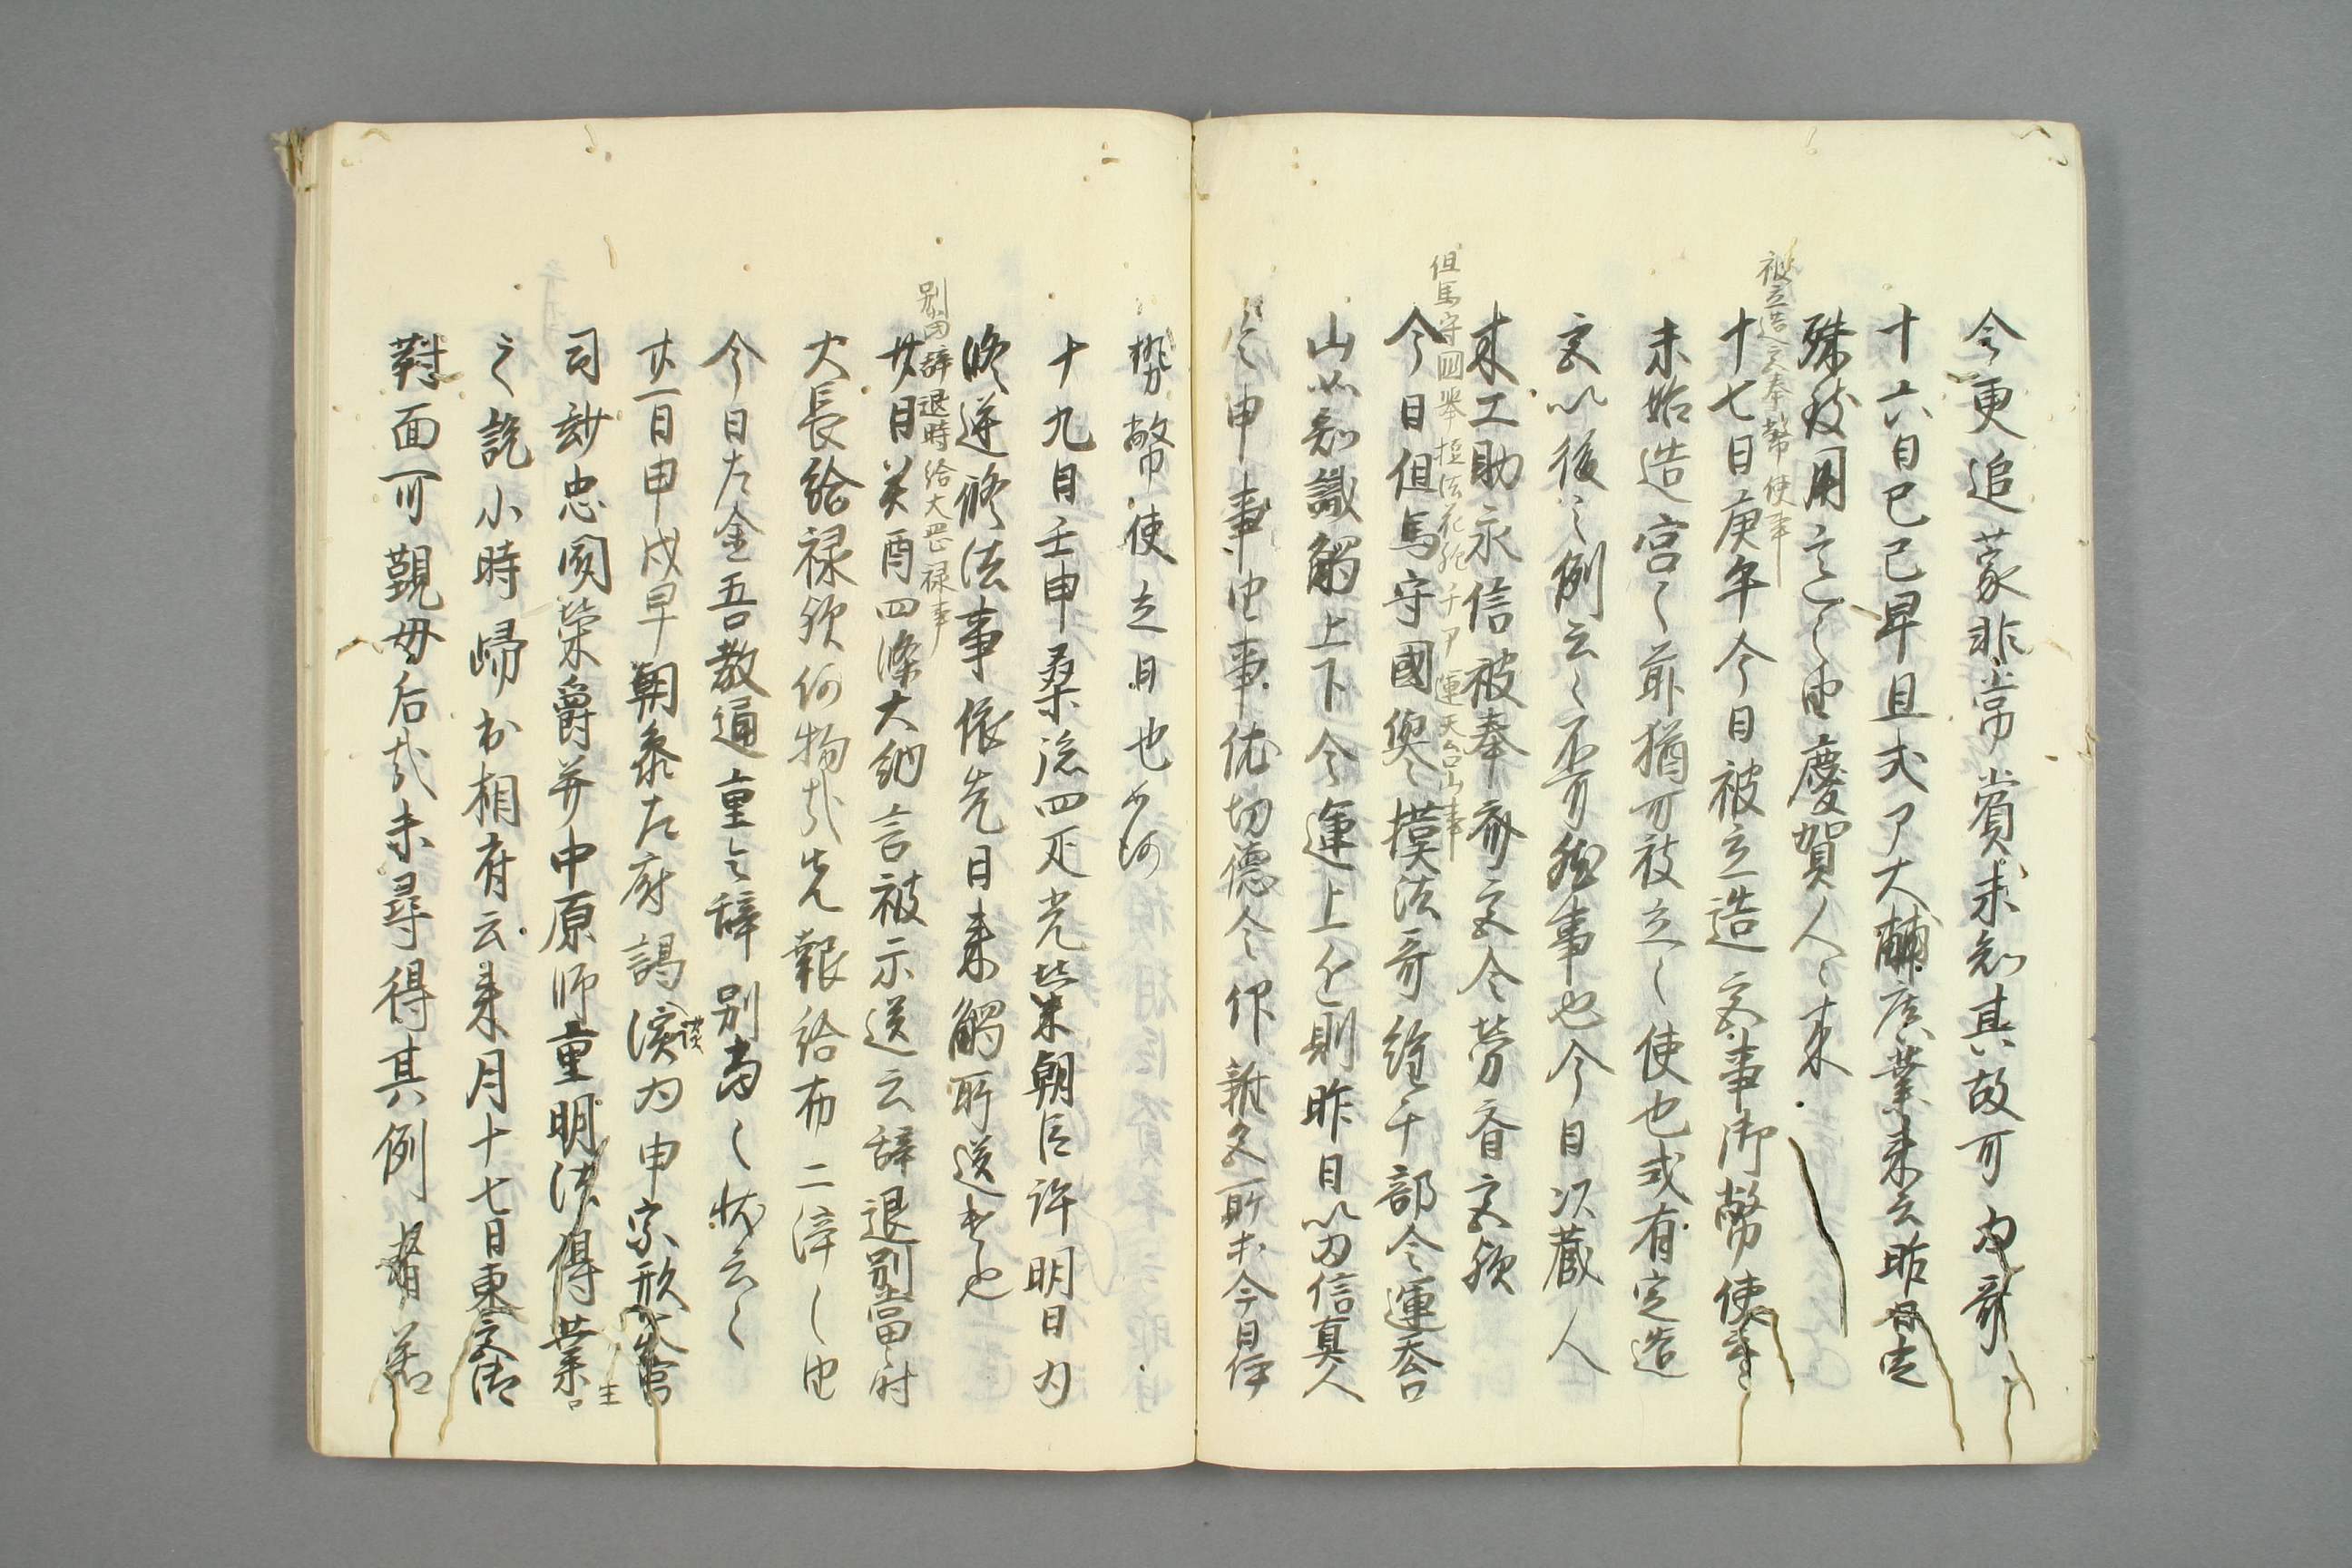 今更追蒙非常賞未知其故可為奇
十六日己巳早旦式ア大輔広業来云昨日吉
殊致用意之由慶賀人々来
被立造宮奉幣使事
十七日庚午今日被立造宮事御幣使
未始造宮之前猶可被立之使也或有定造
宮以後之例云々不可然事也今日次蔵人
木工助永信被奉齋宮令労音宮欤
但馬守囬挙摺法花経千ア運天台山事
今日但馬守國擧摸法奇経千部令運天台
山以知識觸上下令運上々則昨日以為信真人
令申事由事依切徳令仰所今日伊
勢幣使立日也如何
十九日壬申桑流四疋光栄朝臣許明日為
修逆修法事依先日来觸所送也
別當辞退時給大畏禄事
廿日癸酉四條大納言被示送云辞退別當時
大長給禄欤何物哉先報給布二端之由
今日左金吾教通重々辞別當之状云々
廿一日甲戌早朝参左府謁談為申宗形宮
司妙忠関榮爵并中原師重明法得業生
之訖小時帰出相府云来月十七日東宮御
對面可覲母后哉未尋得其例者若